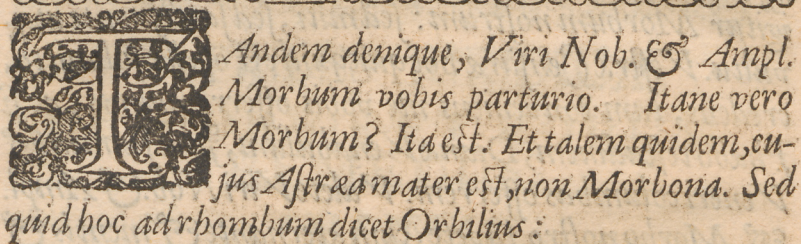 TAndem denique, Viri Nob. & Ampl.
Morbum vobis parturio. Itane vero
Morbum? Ita est. Et talem quidem, cu-
jus Aſtræa mater eſt, non Morbona. Sed
quid hoc ad rhombum dicet Orbilius: